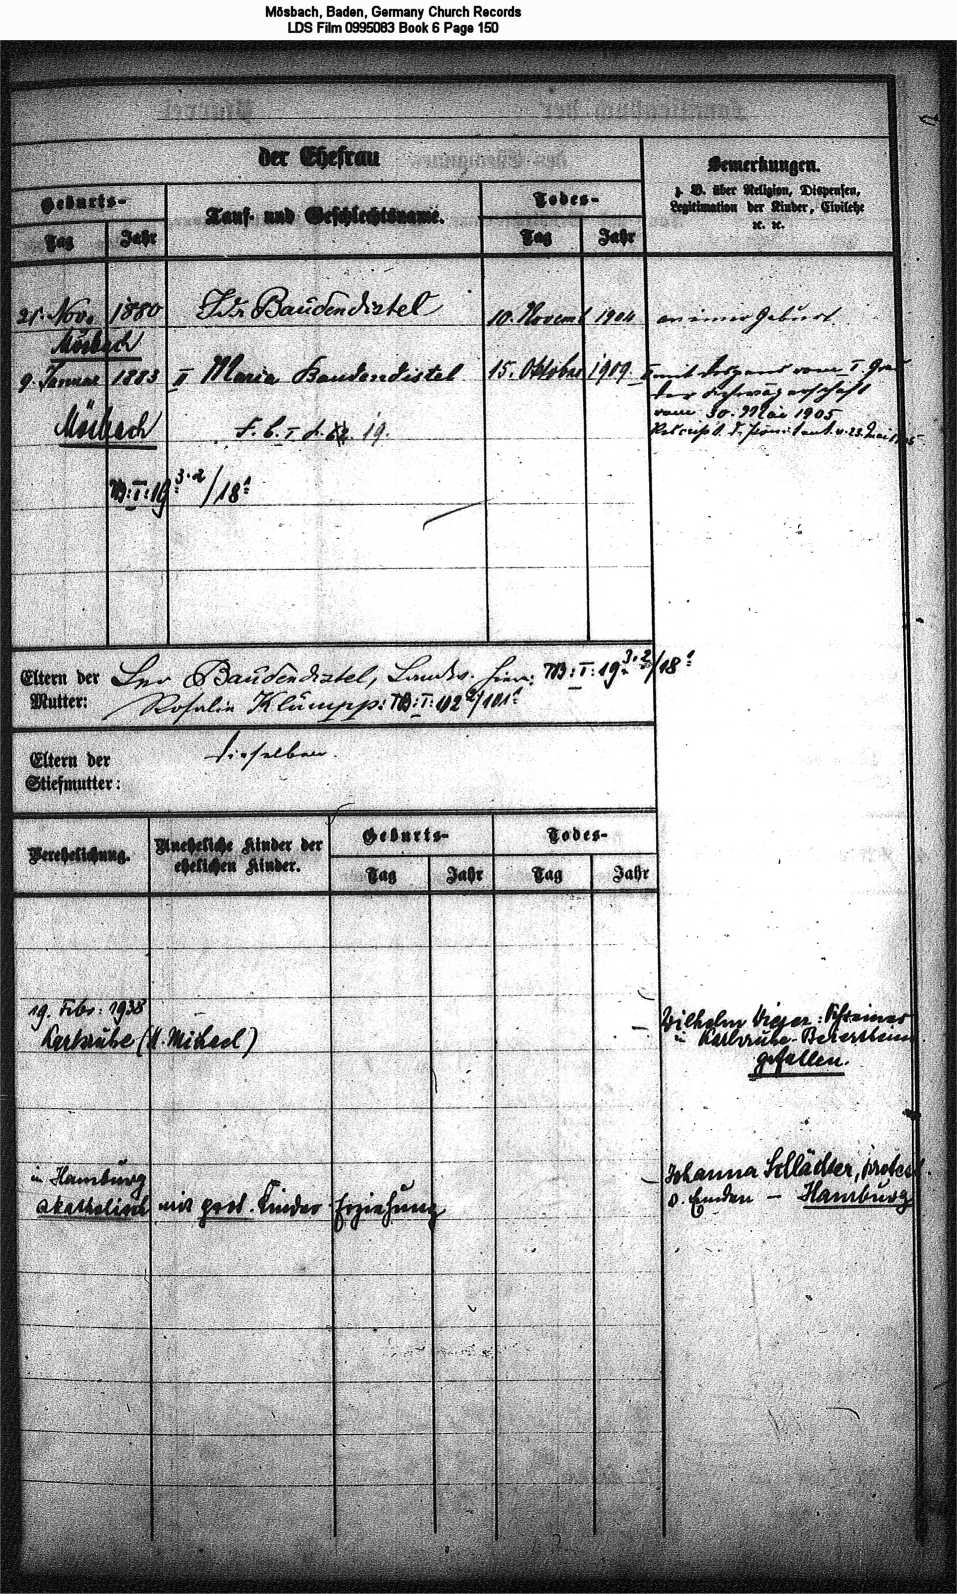 Mösbach, Baden, Germany Church Records
LDS Film 0995083 Book 6 Page 150
der Ehefrau
Bemerkungen.
z. B. über Religion, Dispensen,
Legitimation der Kinder, Civilehe
ꝛc. ꝛc.
Geburts-
Tauf- und Geschlechtsname.
Todes-
Tag
Jahr
Tag
Jahr
21. Nov. 1880 Ida Baudendistel 10. Novemb 1904 an einer Geburt
Mösbach
9. Januar 1883 II Maria Baudendistel 15. Oktober 1909. vom I. Gra
der Schwägerschaft
vom 30. Mai 1905
Mösbach F. b. I d. 19.
B: I: 19 3.2/18
Eltern der
Mutter:
Leo Baudendistel, Landw. hier: B: I: 19 3.2/18
Rosalia Klumpp: B: I: 102 /101
Eltern der
Stiefmutter:
dieselben.
Verehelichung.
Uneheliche Kinder der
ehelichen Kinder.
Geburts-
Todes-
Tag
Jahr
Tag
Jahr
19. Febr: 1938
Karlsruhe (St. Michael)
Wilhelm : Schreiner
in Karlsruhe-Beiertheim
gefallen.
in Hamburg
akatholisch mit prot. Kinder Erziehung
Johanna Schlächter, protest
v. Emden - Hamburg